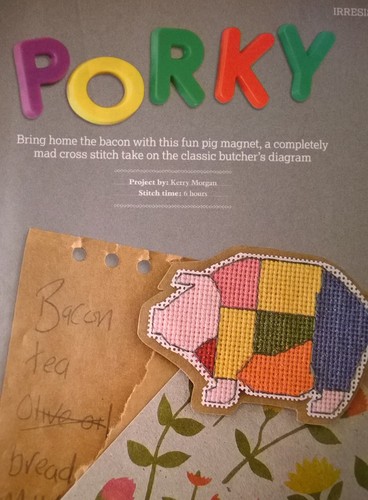 IRRESI
PORKY
Bring home the bacon with this fun pig magnet, a completely
mad cross stitch take on the classic butcher's diagram
Project by: Kerry Morgan
Stitch time: 6 hours
Bacon
tea
Olive oil
bread